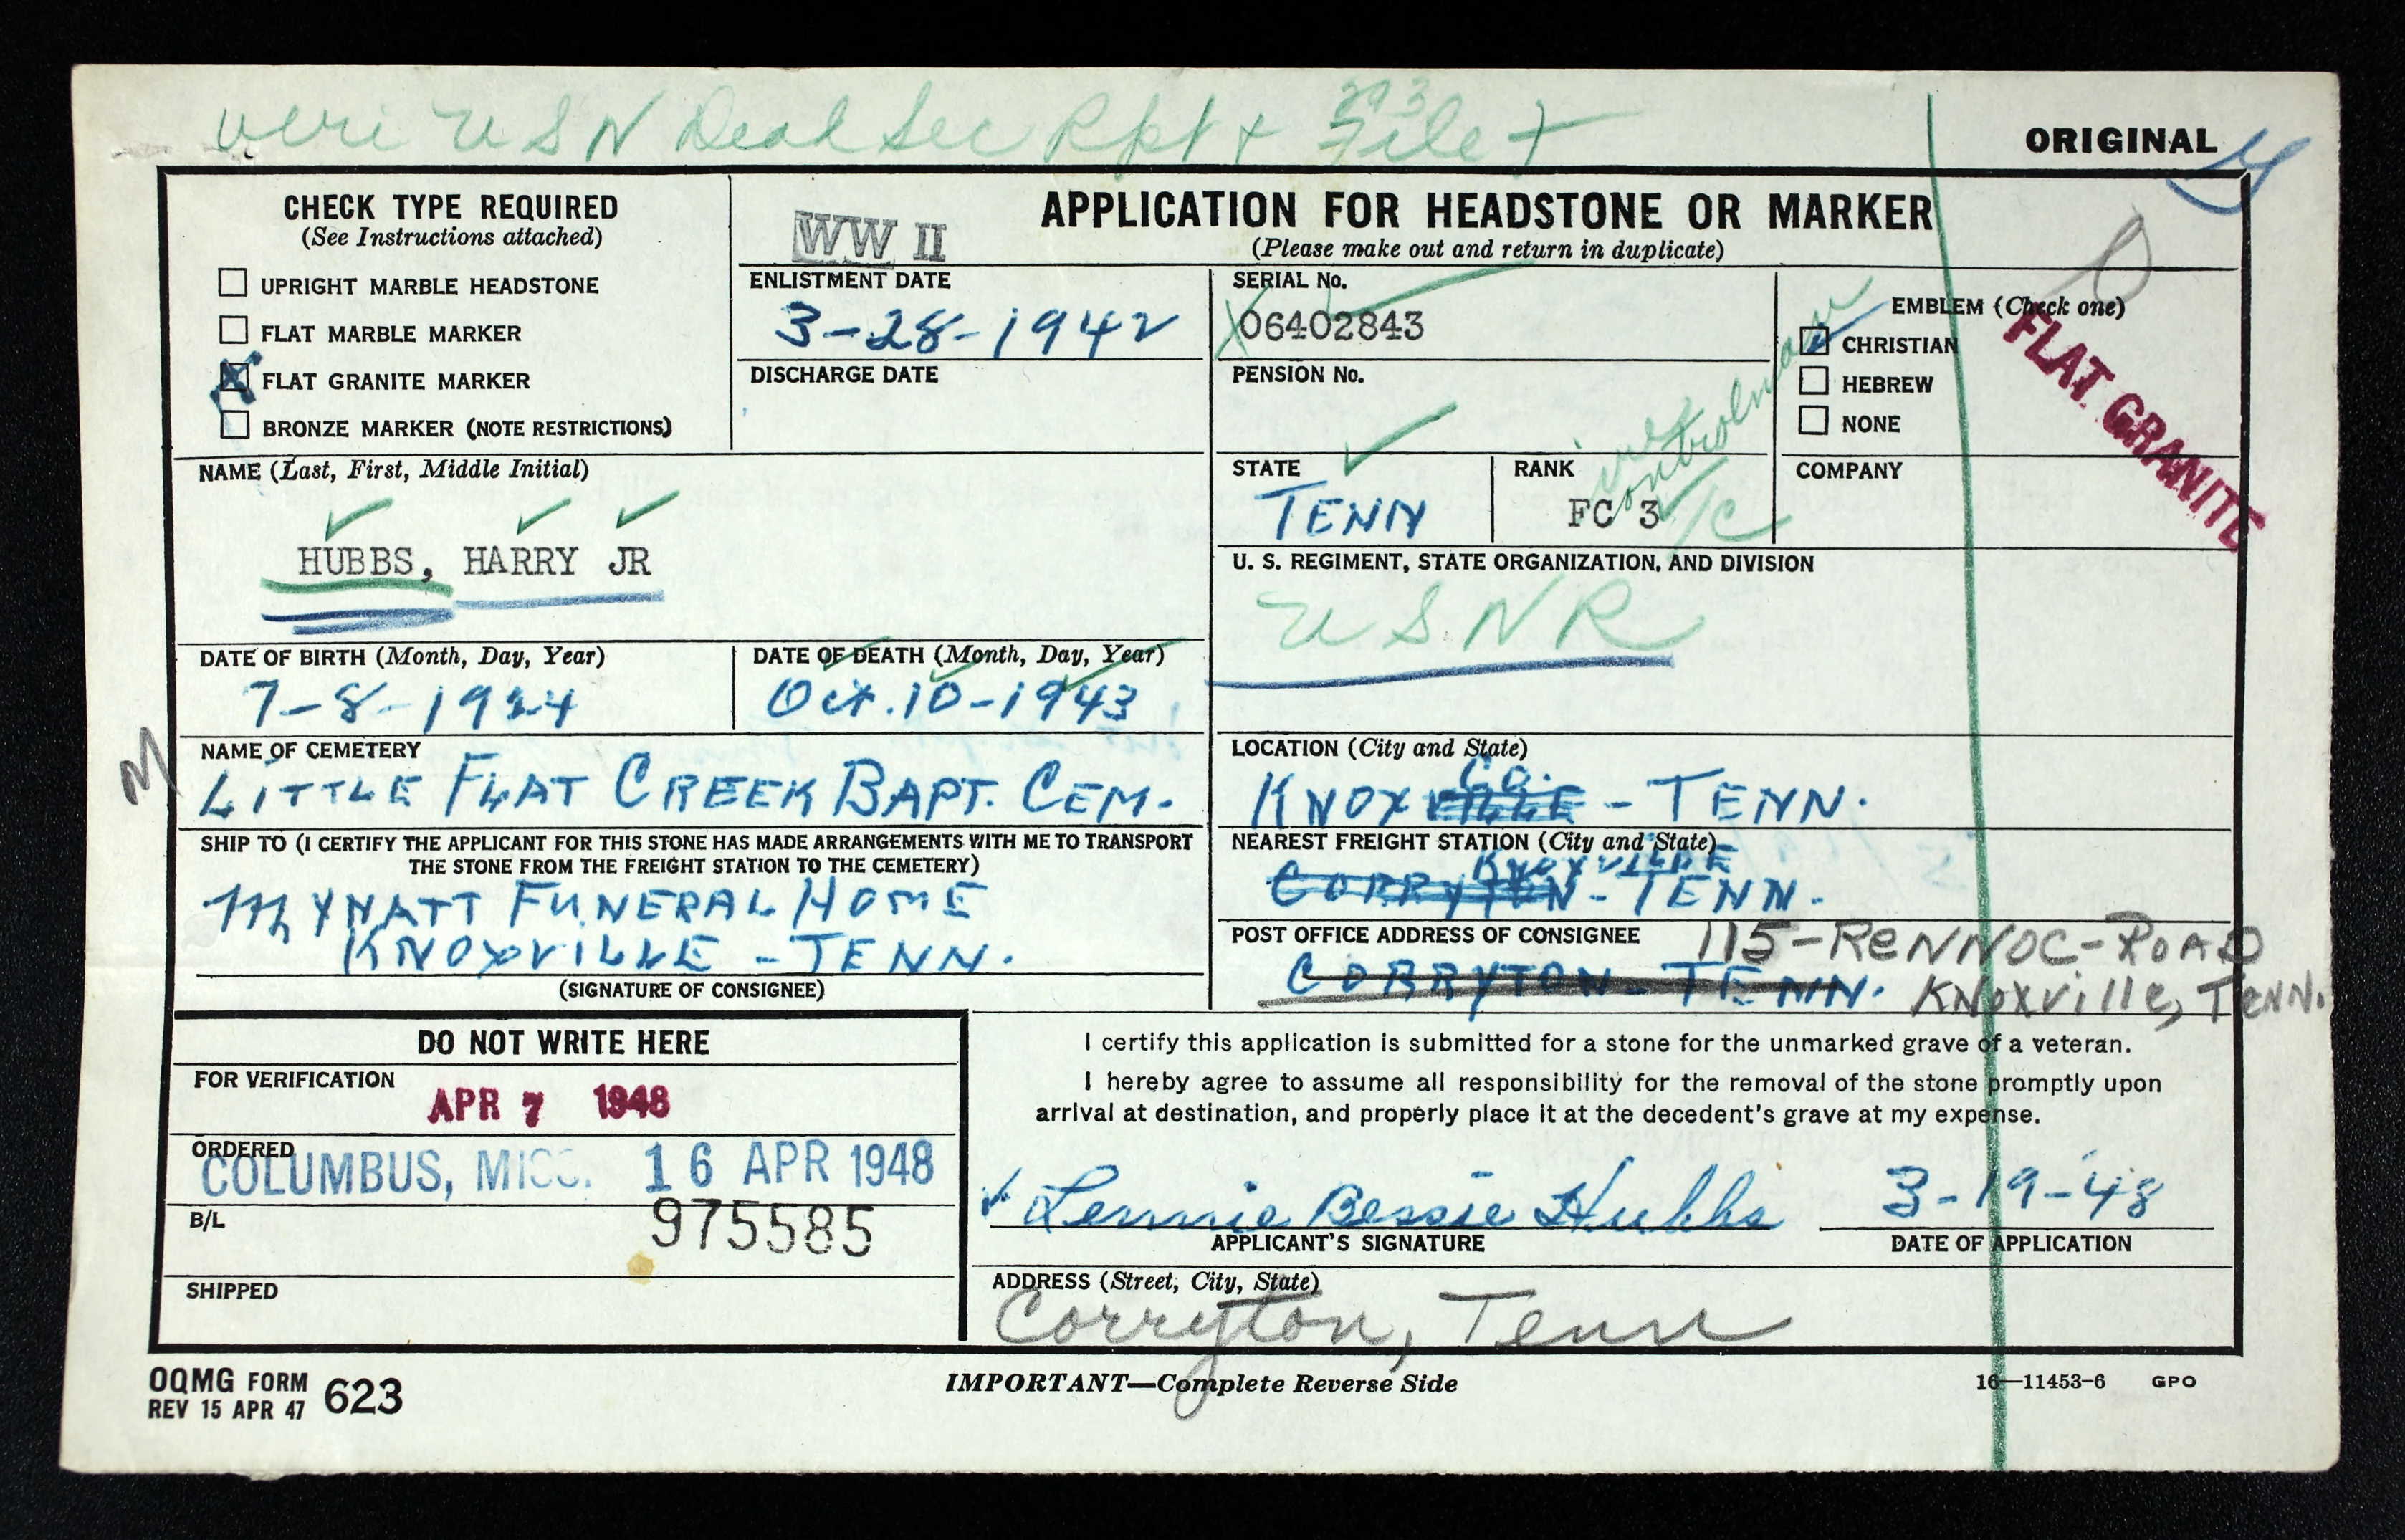 veri USN Dead Sec Rpt + File +
293
ORIGINAL
CHECK TYPE REQUIRED
(See Instructions attached)
UPRIGHT MARBLE HEADSTONE
FLAT MARBLE MARKER
X FLAT GRANITE MARKER
BRONZE MARKER (NOTE RESTRICTIONS)
WW II
APPLICATION FOR HEADSTONE OR MARKER
(Please make out and return in duplicate)
ENLISTMENT DATE
3-28-1942
DISCHARGE DATE
SERIAL No.
06402843
PENSION No.
EMBLEM (Check one)
CHRISTIAN
HEBREW
NONE
FLAT GRANITE
NAME (Last, First, Middle Initial)
HUBBS, HARRY JR
STATE
TENN
RANK
FC 3/C
Fire Controlman
COMPANY
U. S. REGIMENT, STATE ORGANIZATION, AND DIVISION
USNR
DATE OF BIRTH (Month, Day, Year)
7-8-1924
DATE OF DEATH (Month, Day, Year)
Oct. 10-1943
M
NAME OF CEMETERY
LITTLE FLAT CREEK BAPT. CEM.
LOCATION (City and State)
Co.
KNOXVILLE - TENN.
SHIP TO (I CERTIFY THE APPLICANT FOR THIS STONE HAS MADE ARRANGEMENTS WITH ME TO TRANSPORT
THE STONE FROM THE FREIGHT STATION TO THE CEMETERY)
MYNATT FUNERAL HOME
KNOXVILLE - TENN.
(SIGNATURE OF CONSIGNEE)
NEAREST FREIGHT STATION (City and State)
KNOXVILLE
CORRYTON - TENN.
POST OFFICE ADDRESS OF CONSIGNEE
115-RENNOC-ROAD
CORRYTON - TENN.
KNOXville, TENN.
DO NOT WRITE HERE
FOR VERIFICATION
APR 7 1948
ORDERED
COLUMBUS, MISS. 16 APR 1948
B/L
975585
SHIPPED
I certify this application is submitted for a stone for the unmarked grave of a veteran.
I hereby agree to assume all responsibility for the removal of the stone promptly upon
arrival at destination, and properly place it at the decedent's grave at my expense.
Lennie Bessie Hubbs
3-19-48
APPLICANT'S SIGNATURE
DATE OF APPLICATION
ADDRESS (Street, City, State)
Corryton, Tenn
OQMG FORM 623
REV 15 APR 47
IMPORTANT—Complete Reverse Side
16—11453-6 GPO